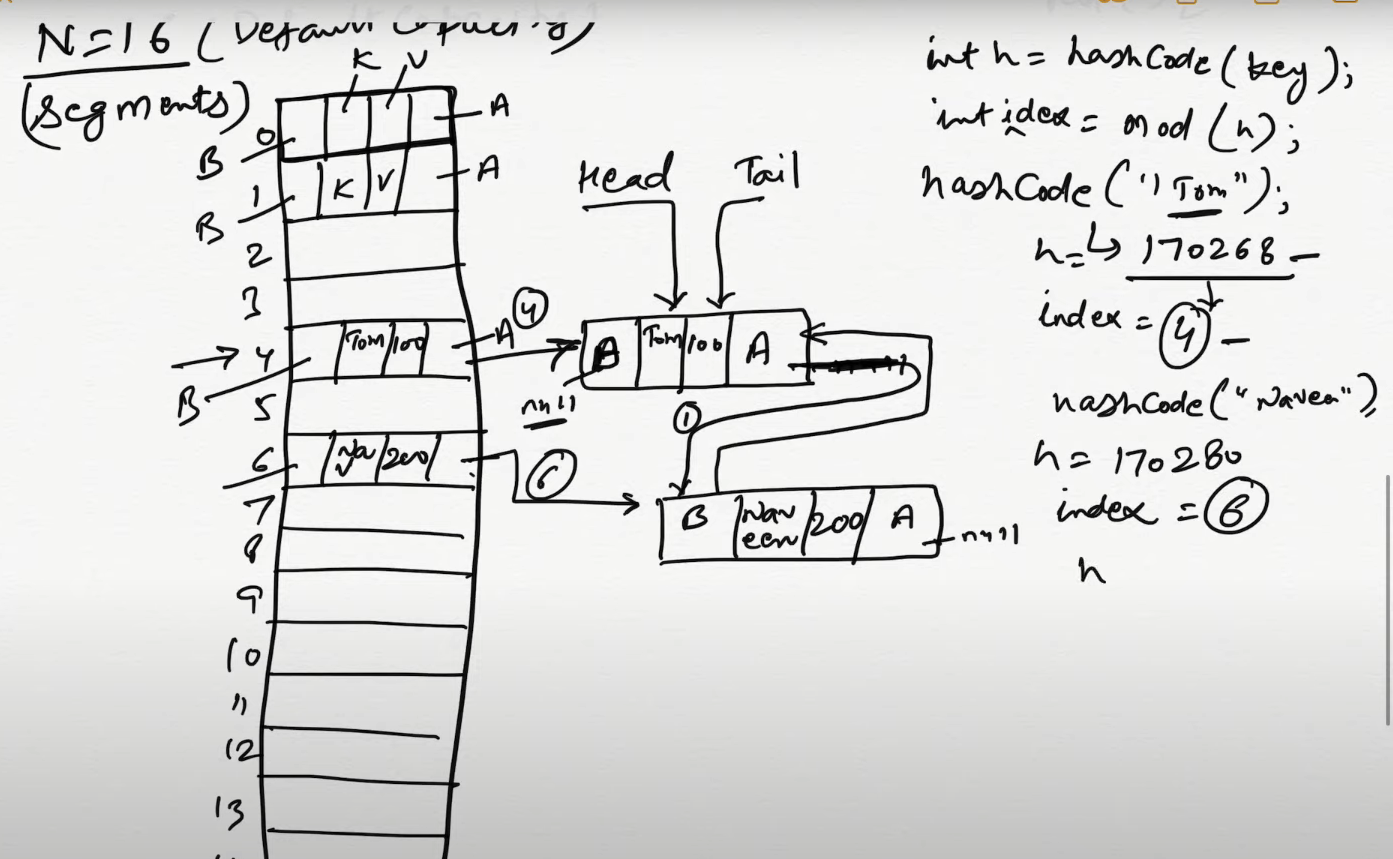 N=16 (Default Capacity)
(Segments)
K V
0 A
B
1 K V A
B
2
3
4 Tom 100 A 4
B
5
6 Na 200 6
7
8
9
10
11
12
13
Head Tail
B Tom 100 A
null
1
B Nav een 200 A null
int h = hashCode(key);
int index = mod(h);
hashCode("Tom");
h = 170268
index = 4
hashCode("Naveen")
h = 170280
index = 6
h